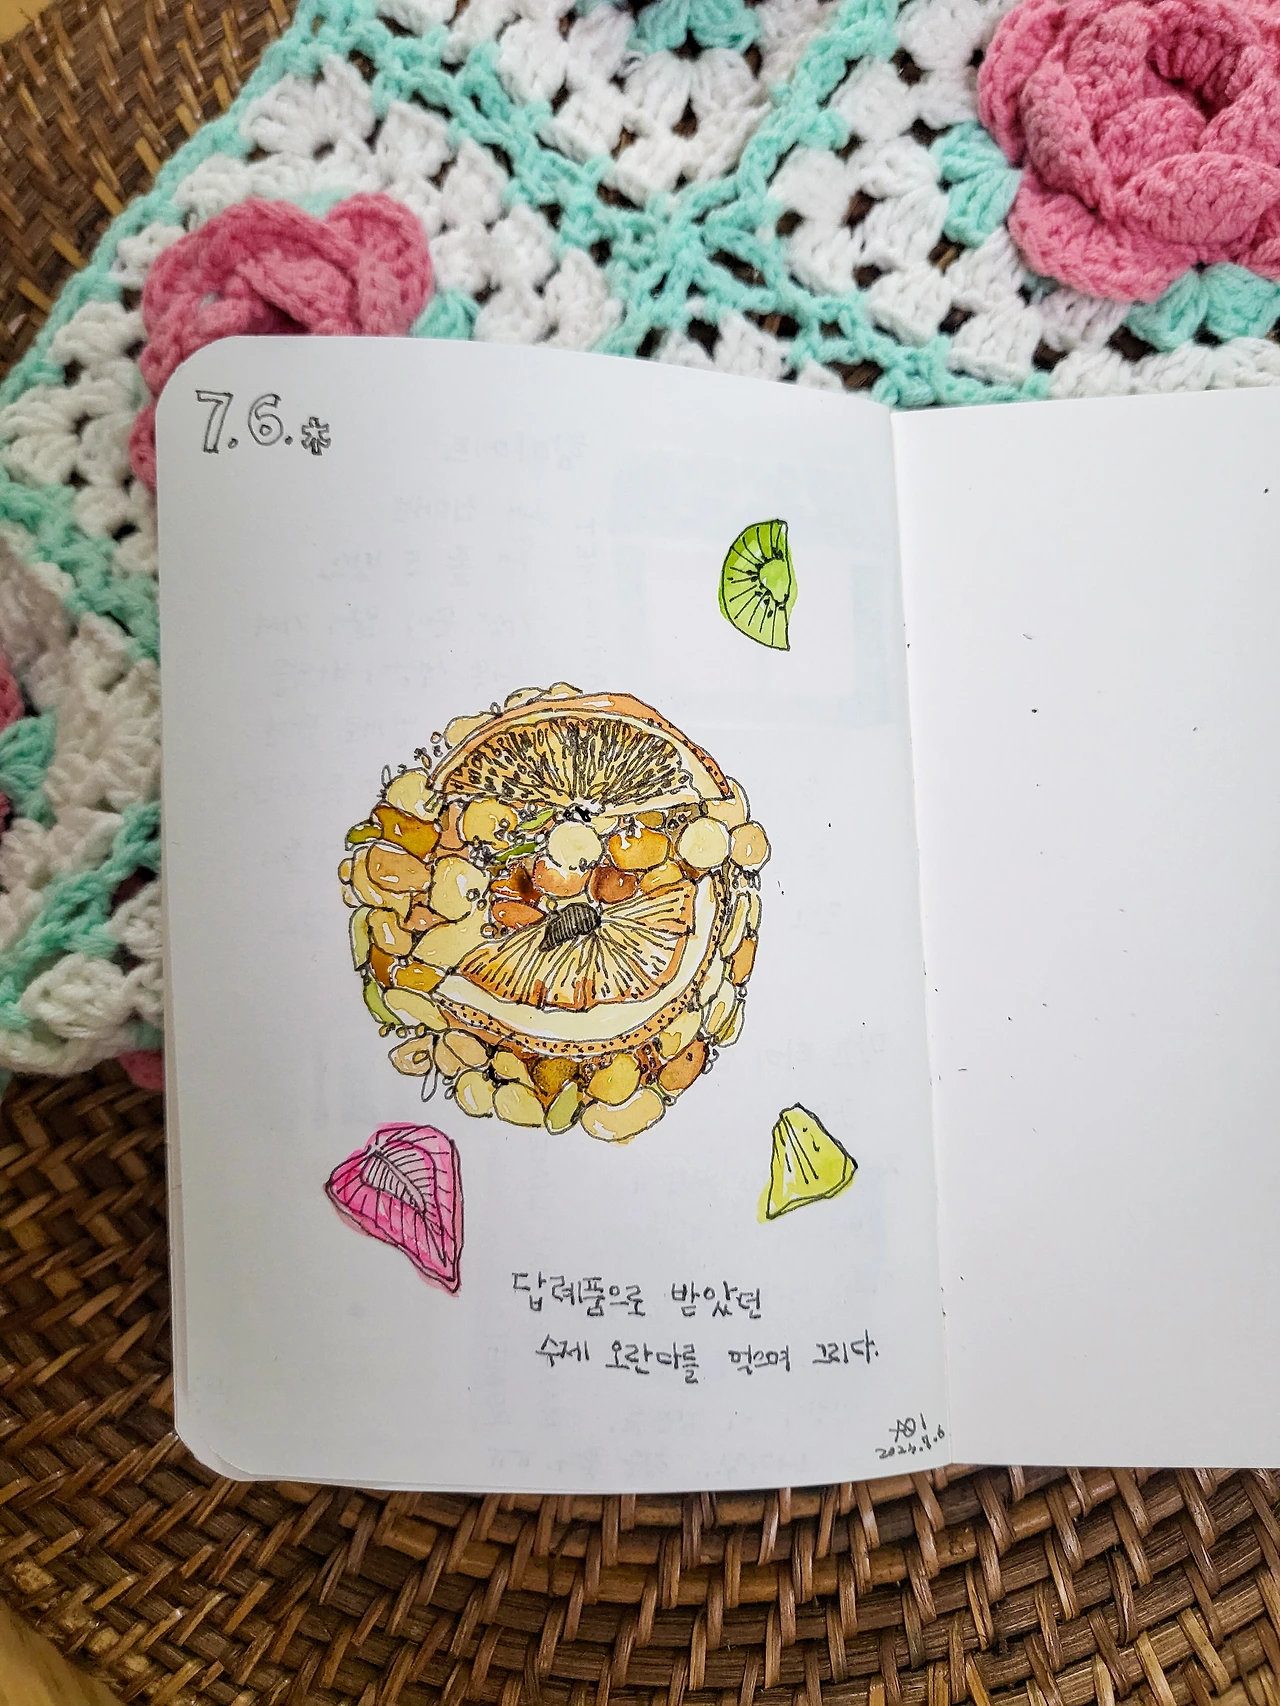 7.6.木
답례품으로 받았던
수제 오란다를 먹으며 그리다.
2023.7.6